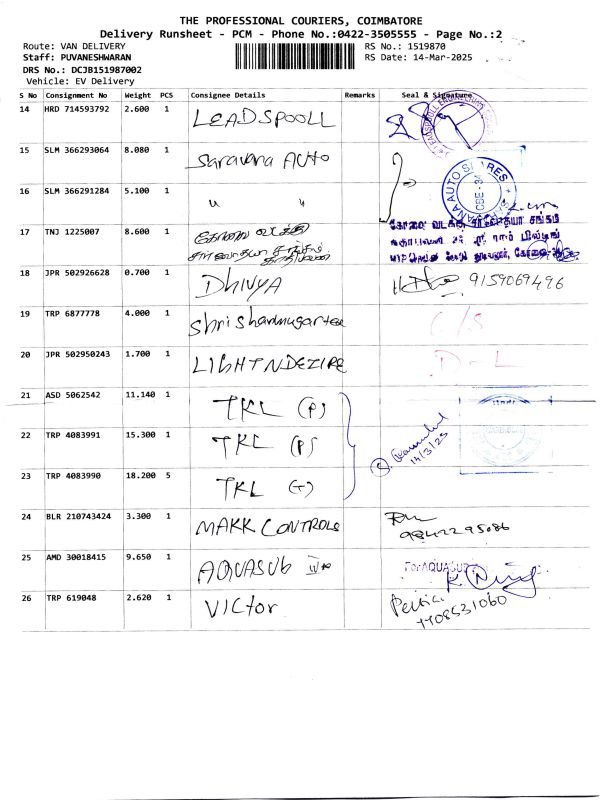 THE PROFESSIONAL COURIERS, COIMBATORE
Delivery Runsheet - PCM - Phone No.:0422-3505555 - Page No.:2
Route: VAN DELIVERY RS No.: 1519870
Staff: PUVANESHWARAN RS Date: 14-Mar-2025
DRS No.: DCJB151987002
Vehicle: EV Delivery
S No Consignment No Weight PCS Consignee Details Remarks Seal & Signature
14 HRD 714593792 2.600 1 LEADSPOOLL
15 SLM 366293064 8.080 1 Saravana AUTO
16 SLM 366291284 5.100 1 " "
AUTO SPARES
CBE-34
17 TNJ 1225007 8.600 1 கோவை வடக்கு
18 JPR 502926628 0.700 1 DHIVYA 9159069496
19 TRP 6877778 4.000 1 Shri C/S
20 JPR 502950243 1.700 1 LIGHTNDEZIRE D-L
21 ASD 5062542 11.140 1 TKL (P)
22 TRP 4083991 15.300 1 TKL (P)
14/3/25
23 TRP 4083990 18.200 5 TKL (T)
24 BLR 210743424 3.300 1 MAKK CONTROLS
9842295086
25 AMD 30018415 9.650 1 AQUASUB For AQUASUB
26 TRP 619048 2.620 1 VICTOR